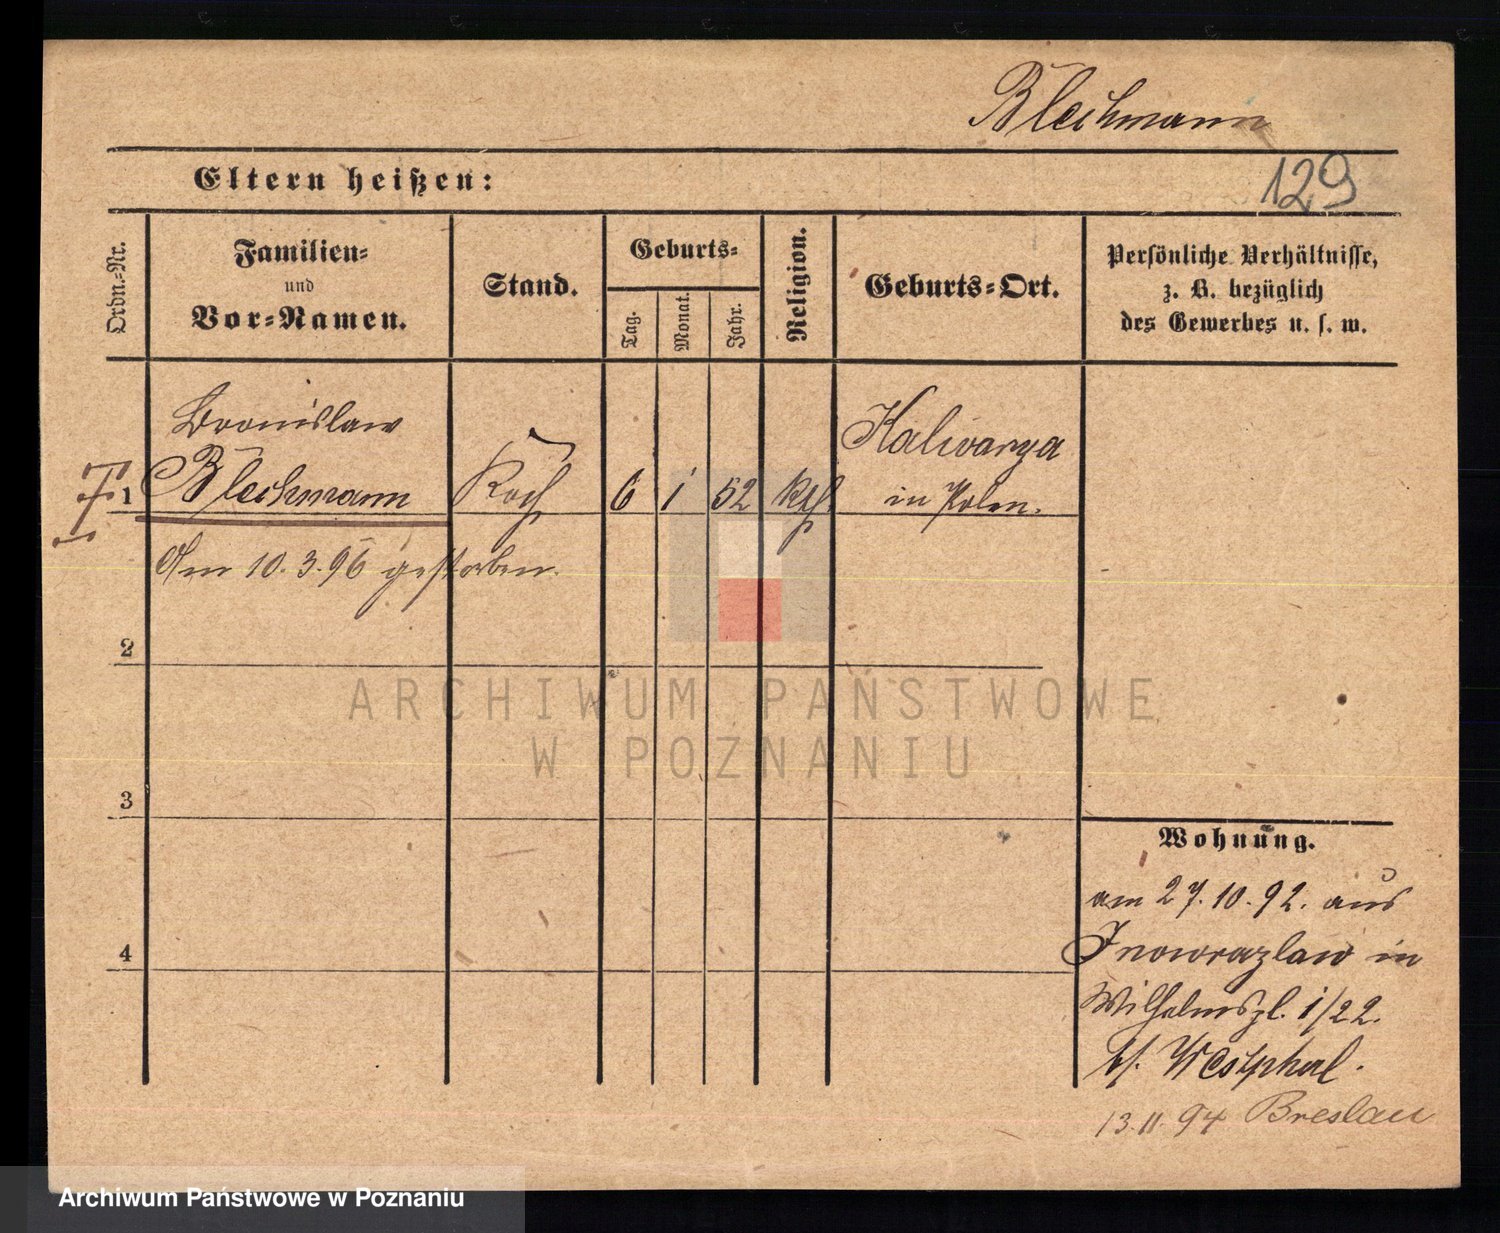 Blechmann
129
Eltern heißen:
Ordn.-Nr.
Familien-
und
Vor-Namen.
Stand.
Geburts-
Tag.
Monat.
Jahr.
Religion.
Geburts-Ort.
Persönliche Verhältnisse,
z. B. bezüglich
des Gewerbes u. s. w.
Bronislaw
1 Blechmann Koch 6 1 52 kth.
Kalwarya
in Polen.
Am 10.3.96 gestorben.
2
3
4
Wohnung.
am 27.10.92. aus
Inowrazlaw in
Wilhelmspl. 1/22.
b/. Westphal.
13.11.94 Breslau
ARCHIWUM PAŃSTWOWE
W POZNANIU
Archiwum Państwowe w Poznaniu